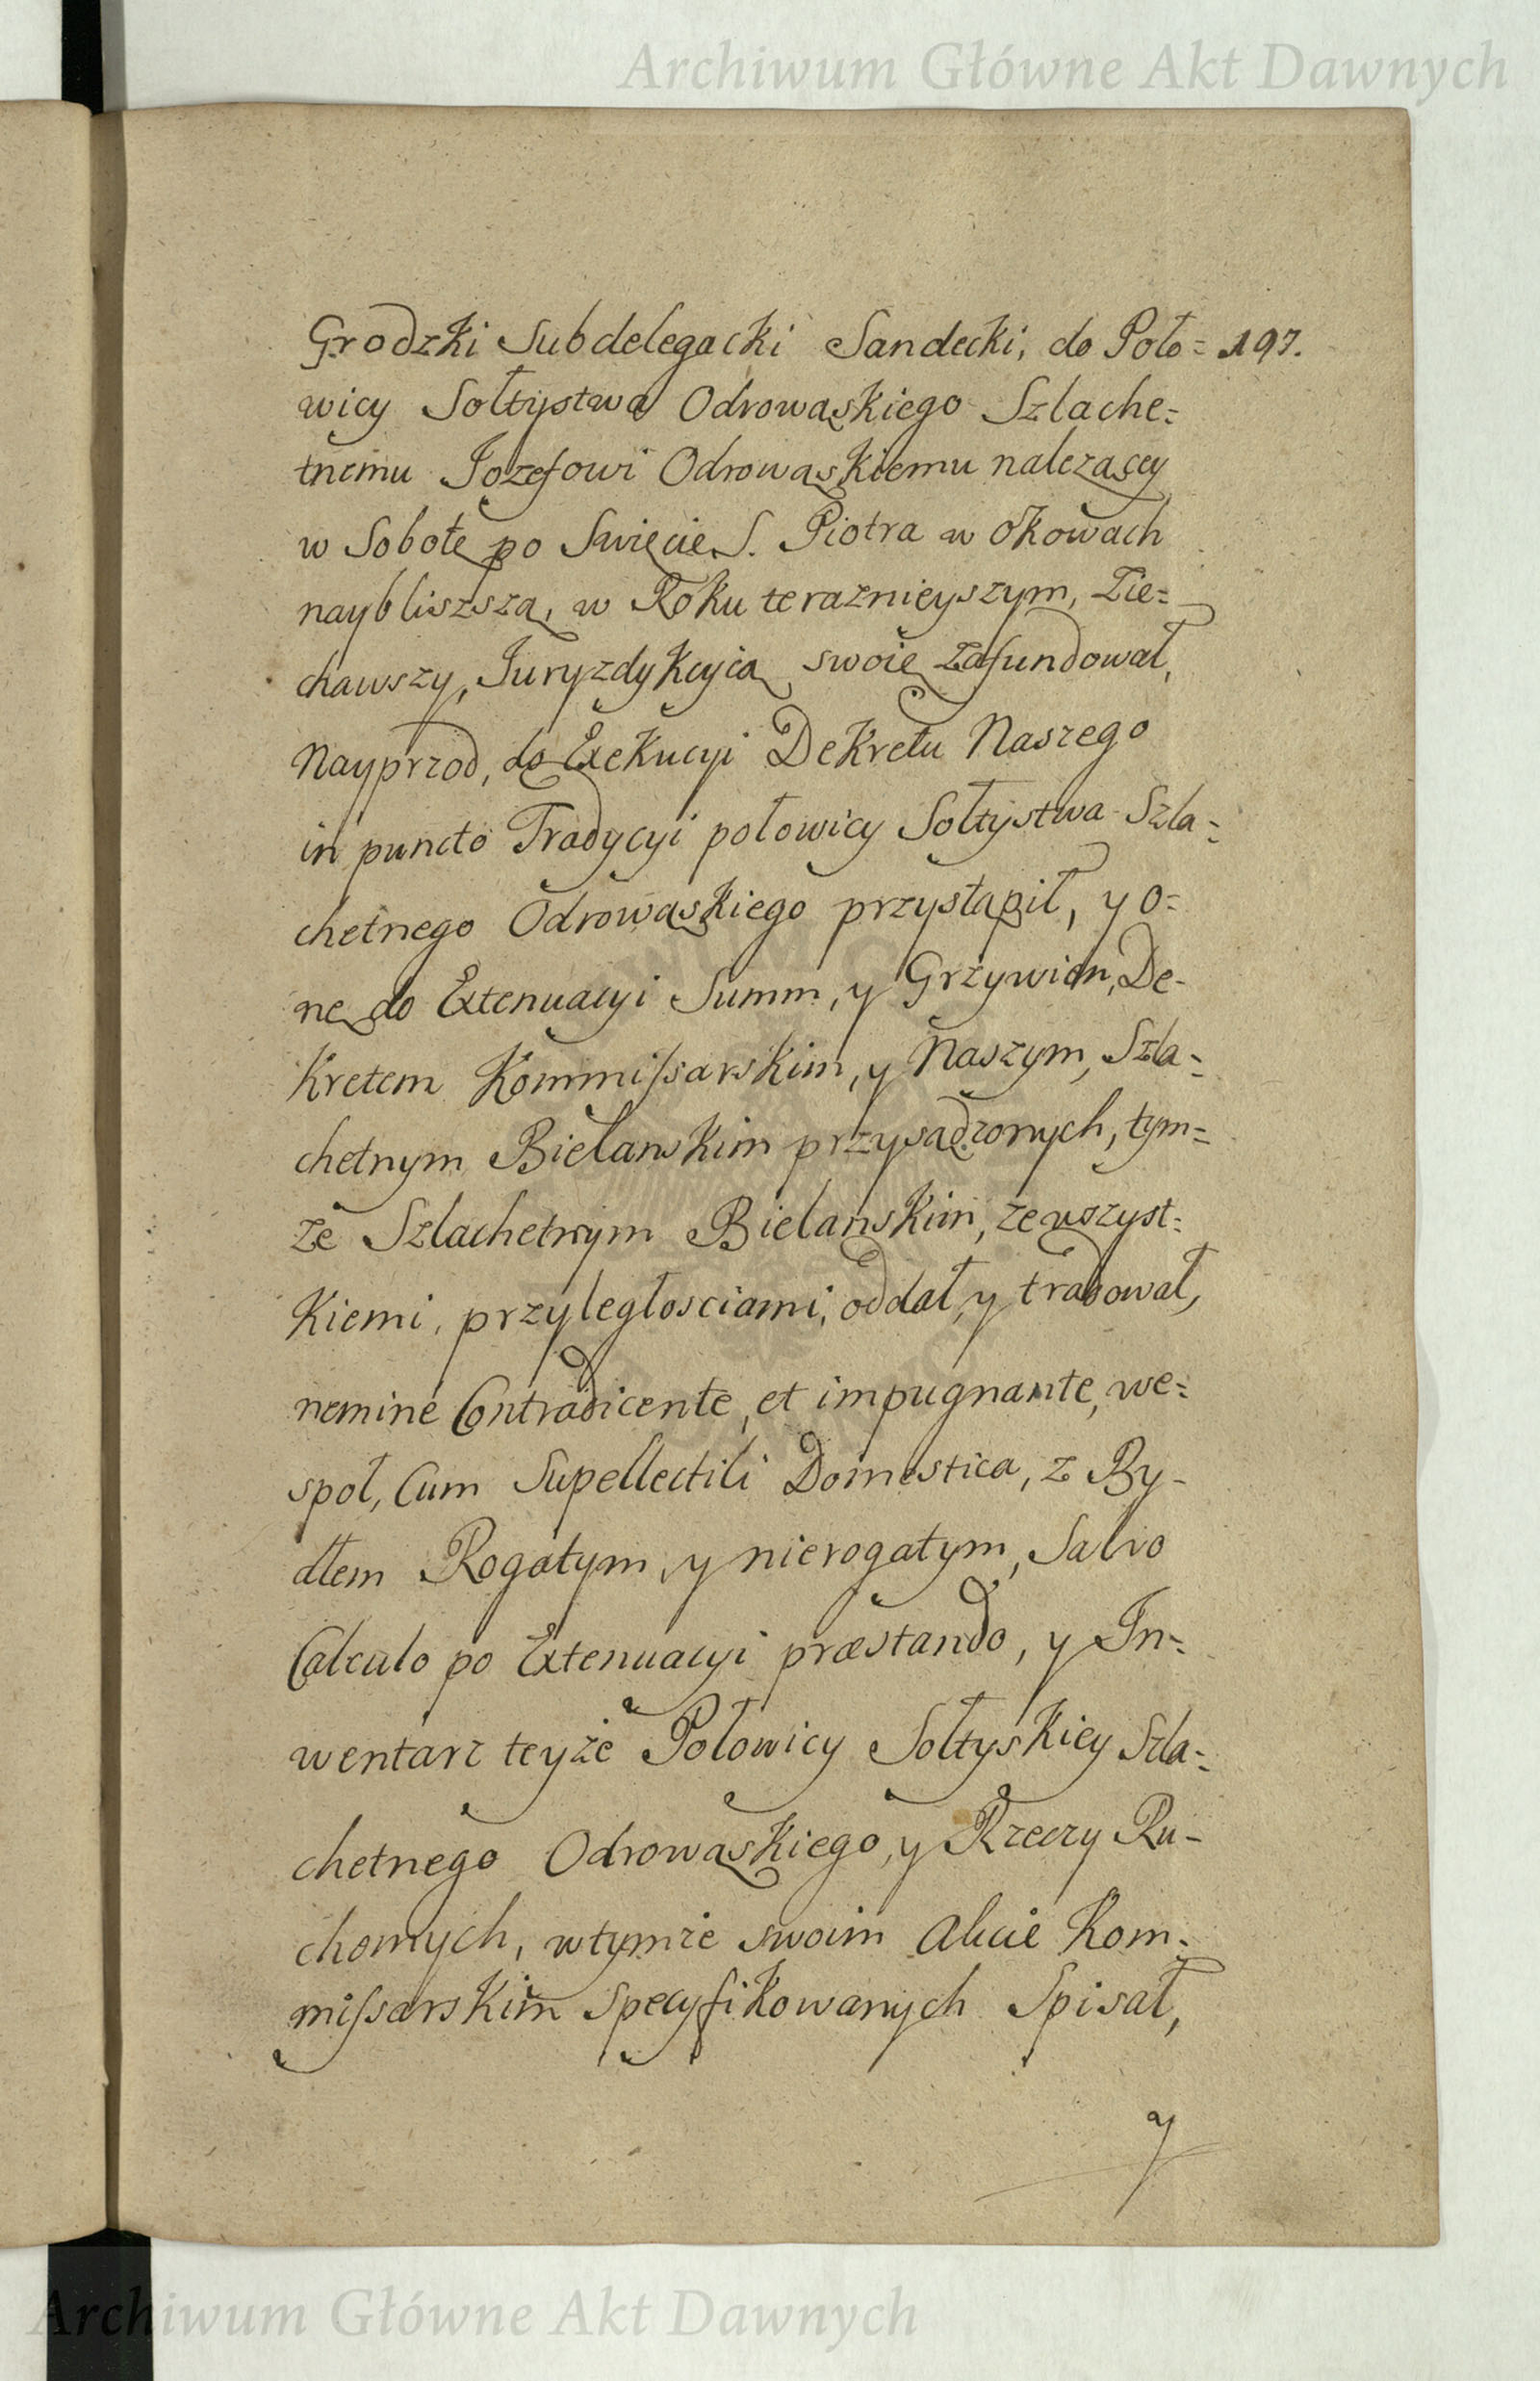 Archiwum Główne Akt Dawnych
Grodzki Subdelegacki Sandecki, do Poło= 197.
wicy Sołtystwa Odrowąskiego Szlache=
tnemu Jozefowi Odrowąskiemu należącey
w Sobotę po Swięcie S. Piotra w okowach
naybliszszą, w Roku teraznieyszym, Zie=
chawszy, Juryzdykcyią swoię zafundował,
Nayprzod, do Exekucyi Dekretu Naszego
in puncto Tradycyi połowicy Sołtystwa Szla=
chetnego Odrowąskiego przystąpił, y o=
nę do Extenuacyi Summ, y Grzywien, De-
kretem Kommissarskim, y Naszym, Szla=
chetnym Bielanskim przysądzonych, tym=
że Szlachetnym Bielanskim, ze wszyst=
kiemi, przyległosciami, oddał, y tradował,
nemine Contradicente, et impugnante, we=
społ, Cum Supellectili Domestica, z By-
dłem Rogatym, y nierogatym, Salvo
Calculo po Extenuacyi præstando, y In=
wentarz teyże Połowicy Sołtyskiey Szla=
chetnego Odrowąskiego, y Rzeczy Ru-
chomych, w tymże swoim Akcie Kom=
missarskim specyfikowanych Spisał,
y
Archiwum Główne Akt Dawnych